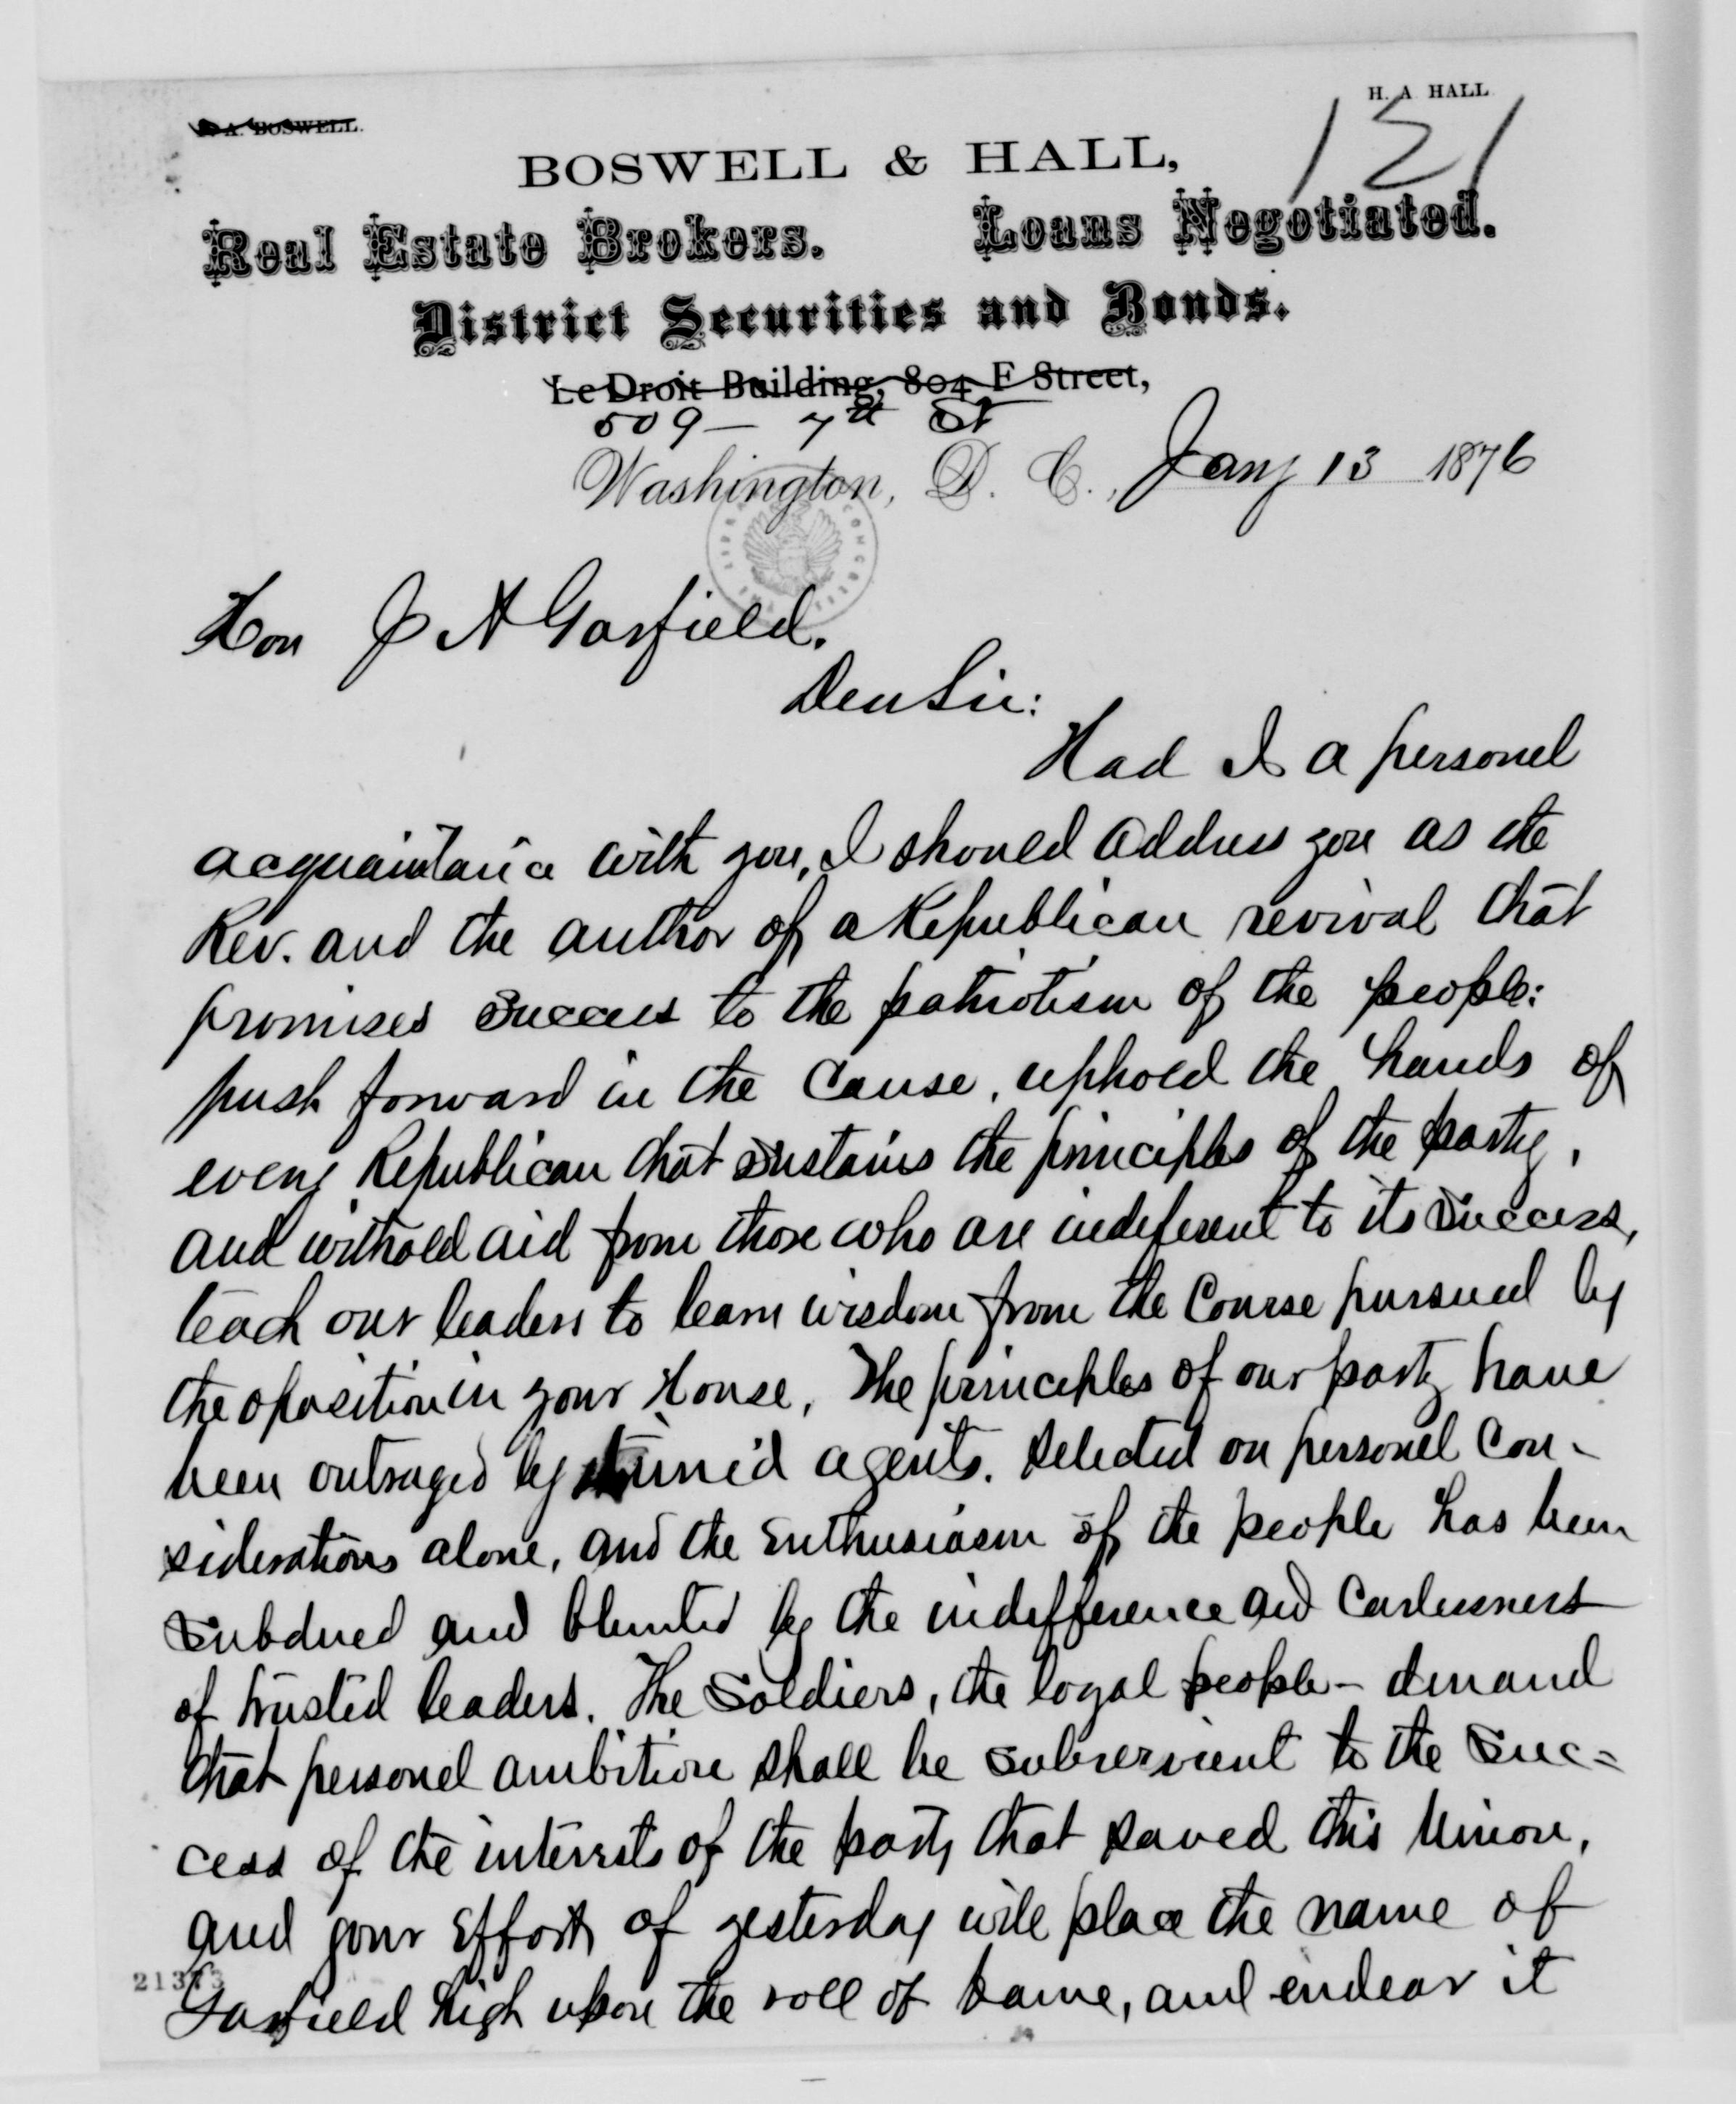 A. BOSWELL.
H. A. HALL
121
BOSWELL & HALL,
Real Estate Brokers. Loans Negotiated.
District Securities and Bonds.
Le Droit Building, 804 F Street,
509 – 7th St
Washington, D. C., Jany 13 1876
Hon J A Garfield.
Dear Sir:
Had I a personel
acquaintance with you, I should address you as the
Rev. and the author of a Republican revival that
promises success to the patriotism of the people:
push forward in the cause, uphold the hands of
every Republican that sustains the principles of the party,
and withold aid from those who are indeferent to its success,
teach our leaders to learn wisdom from the course pursued by
the oposition in your House, The principles of our party have
been outraged by timid agents. selected on personel con-
siderations alone, and the enthusiasm of the people has been
subdued and blunted by the indefference and carlessness
of trusted leaders. The soldiers, the loyal people – demand
that personel ambition shall be subservient to the suc=
cess of the interests of the party that saved this Union,
and your efforts of yesterday will place the name of
Garfield high upon the roll of fame, and endear it